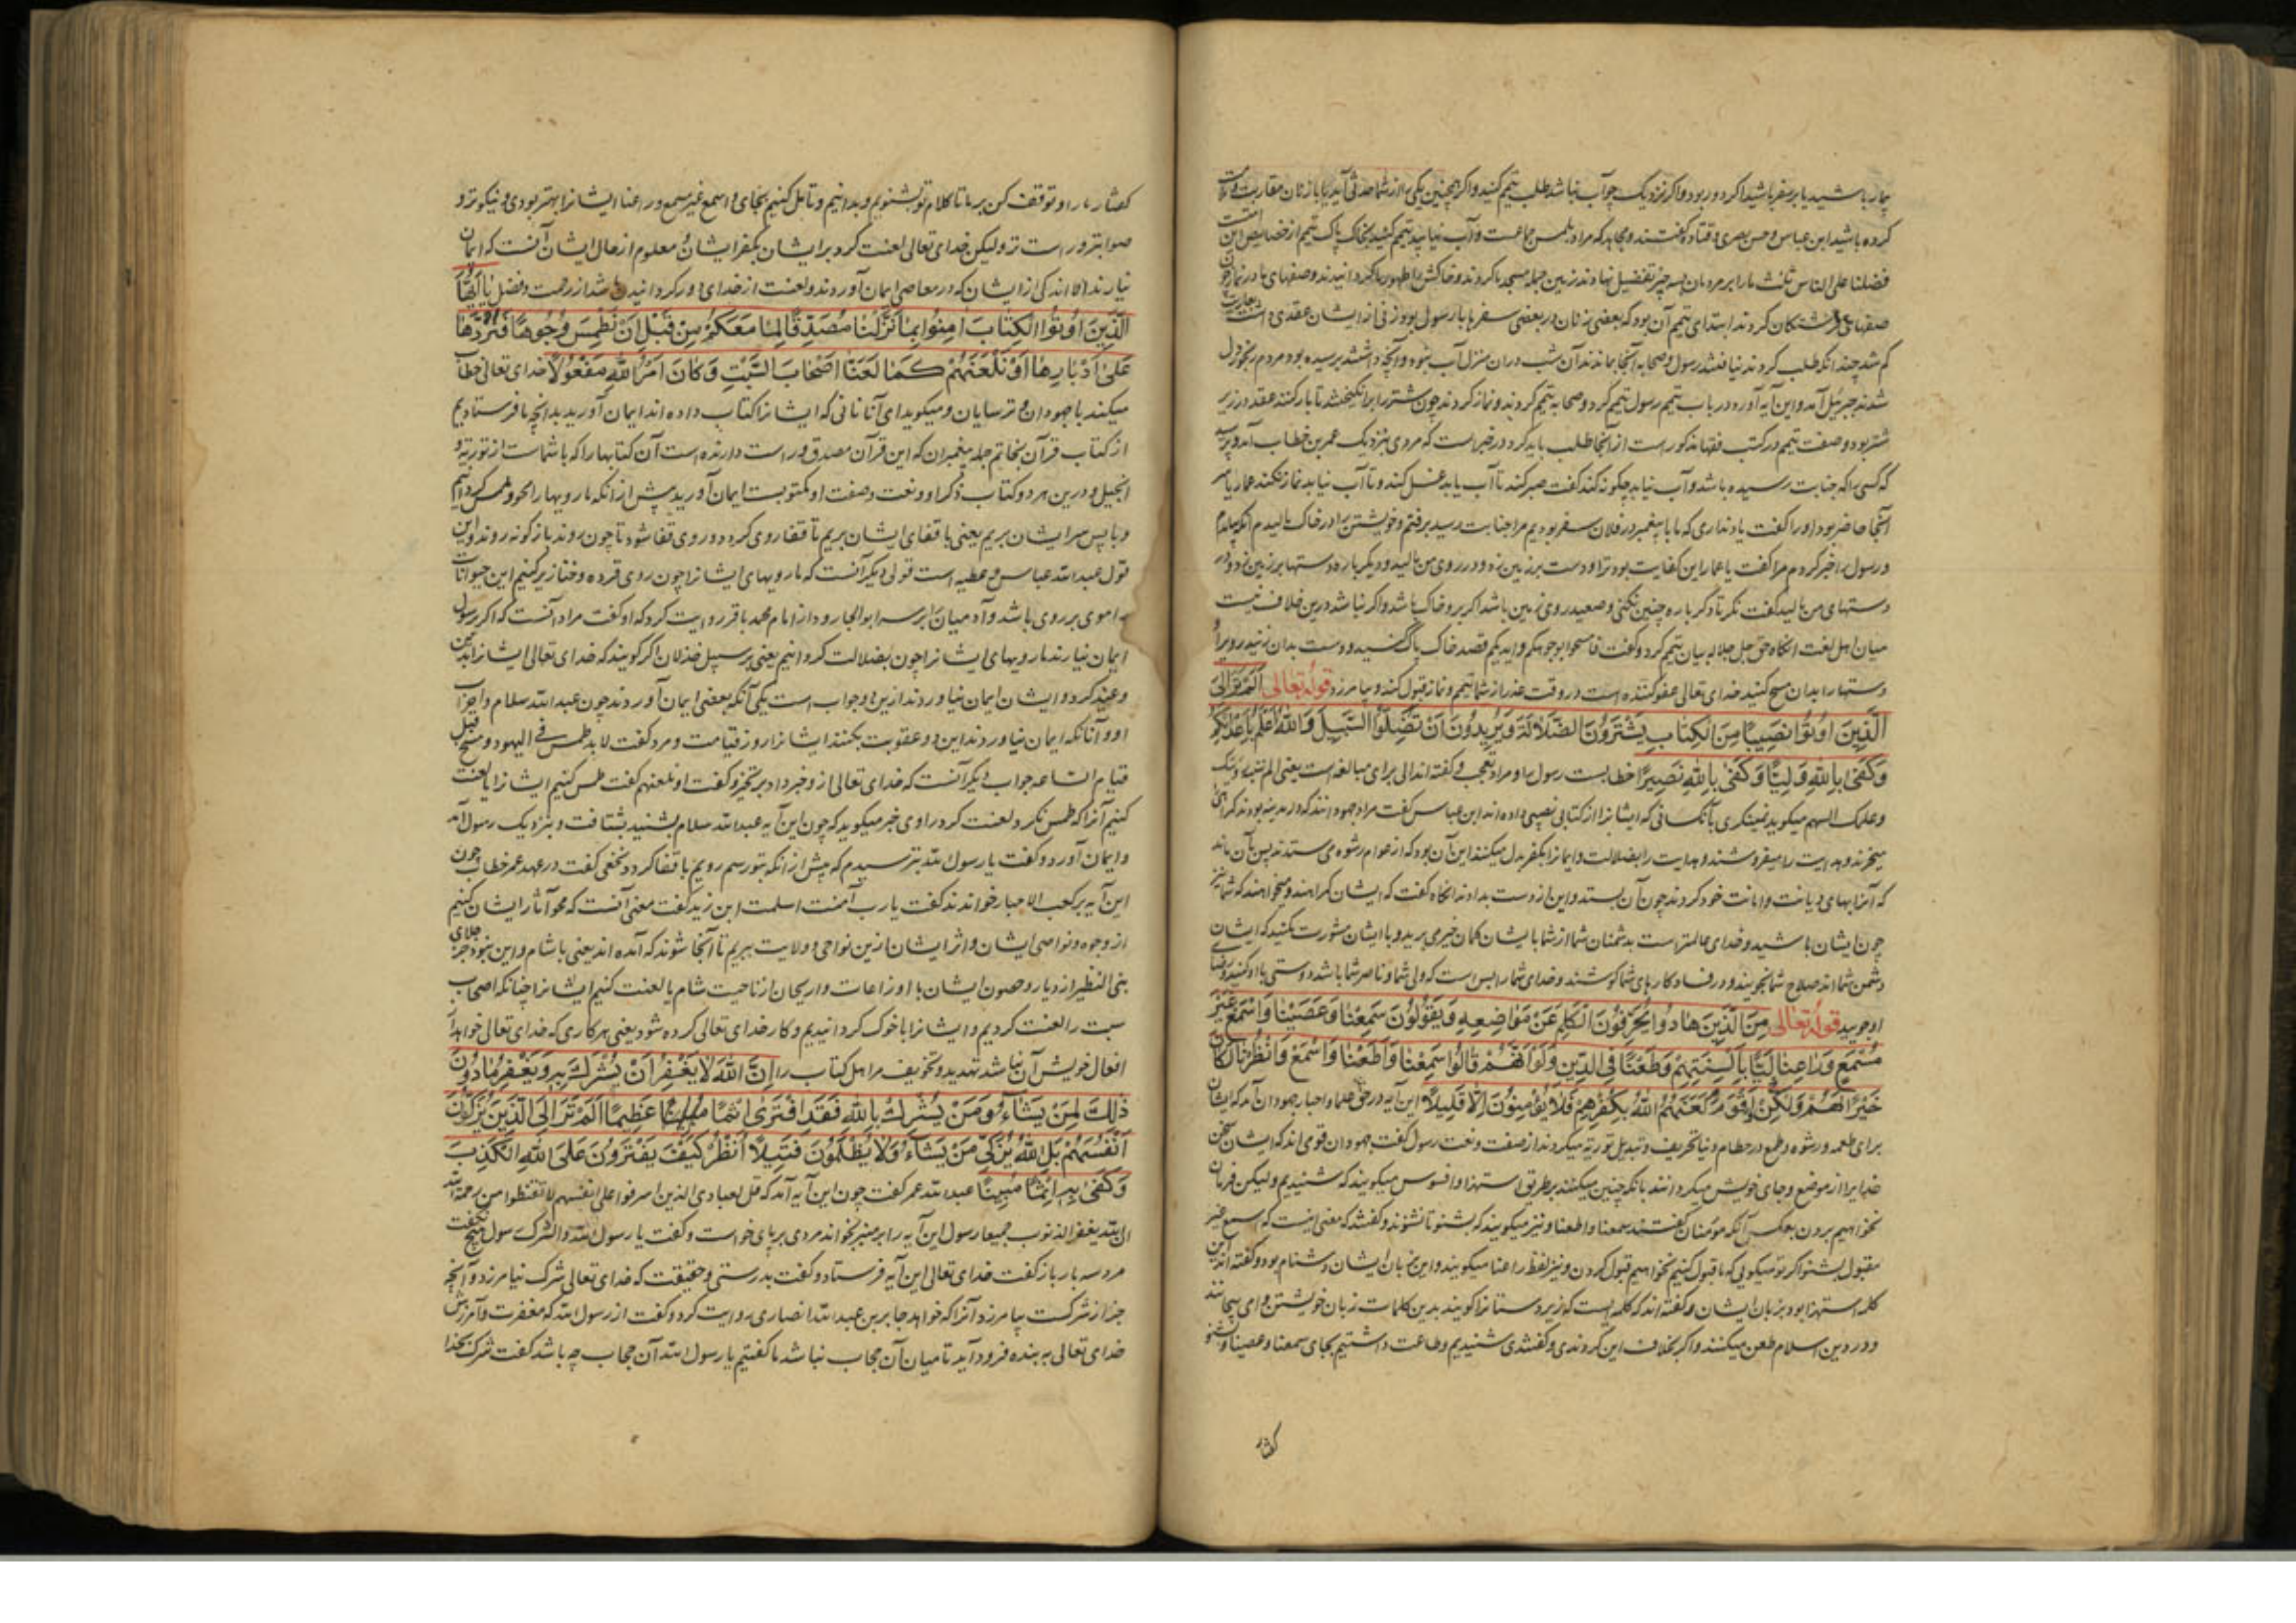 بیمار باشید یا بر سفر باشید اگر دور بود و اگر نزدیک چو آب نباشد طلب تیمم کنید و اگر همچنین یکی را از شما حدثی آید یا با زنان مقاربت
کرده باشید ابن عباس و حسن بصری و قتاده گفتند و مجاهد که مراد بلمس جماعت و آب نیابید تیمم کنید بخاک پاک تیمم از خصایص این امتست
فضلنا علی الناس بثلث ما را بر مردمان بسه چیز تفضیل نهادند زمین جمله مسجد ما کردند و خاکش را طهور ما گردانیدند و صفهای ما در نماز چون
صفهای فرشتگان کردند ابتدای تیمم آن بود که بعضی زنان در بعضی سفرها با رسول بود زنی از ایشان عقدی
گم شد چندانکه طلب کردند نیافتند رسول و صحابه آنجا بماندند آن شب در آن منزل آب نبود و آنچه داشتند برسیده بود مردم رنجور دل
شدند جبرئیل آمد و این آیه آورد در باب تیمم رسول تیمم کرد و صحابه تیمم کردند و نماز کردند چون شتر را برانگیختند تا بار کنند عقد در زیر
شتر بود و صفت تیمم در کتب فقها مذکور است از آنجا طلب باید کرد در خبر است که مردی بنزدیک عمر بن خطاب آمد و پرسید
که کسی را که جنابت رسیده باشد و آب نیابد چگونه کند گفت صبر کند تا آب یابد غسل کند و تا آب نیابد نماز نکند عمار یاسر
آنجا حاضر بود او را گفت یاد نداری که ما با پیغمبر در فلان سفر بودیم مرا جنابت رسید برفتم و خویشتن را در خاک مالیدم
و رسول را خبر کردم مرا گفت یا عمار این کفایت بود ترا و دست بر زمین زد و در روی من مالید و دیگر باره دستها بر زمین زد و در
دستهای من مالید گفت نگر تا دگر باره چنین نکنی و صعید روی زمین باشد اگر برو خاک باشد و اگر نباشد درین خلاف نیست
میان اهل لغت آنگاه حق جل جلاله بیان تیمم کرد و گفت فامسحوا بوجوهکم و ایدیکم قصد خاک پاک کنید و دست بدان زنید و رویرا و
دستها را بدان مسح کنید خدای تعالی عفو کننده است در وقت عذر از شما تیمم و نماز قبول کند و بیامرزد قوله تعالی الم تر الی
الَّذِینَ اُوتُوا نَصِیبًا مِنَ الْکِتَابِ یَشْتَرُونَ الضَّلَالَةَ وَیُرِیدُونَ اَنْ تَضِلُّوا السَّبِیلَ وَاللهُ اَعْلَمُ بِاَعْدَائِکُمْ
وَکَفَی بِاللهِ وَلِیًّا وَکَفَی بِاللهِ نَصِیرًا خطابست رسول را و مراد تعجب و گفته‌اند الی برای مبالغه است یعنی الم
و علمک الیهم میگوید نمینگری بآنکسانی که ایشانرا از کتاب نصیبی داده‌اند ابن عباس گفت مراد جهودانند که در مدینه بودند
میخرند و هدایت را میفروشند و هدایت را بضلالت و ایمانرا بکفر بدل میکنند این آن بود که از عوام رشوه می‌ستدند پس بآن ماند
که آنرا بهای دیانت و امانت خود کردند چون آن بستد و این از دست بدادند آنگاه گفت که ایشان گمراهند و میخواهند که شما نیز
چون ایشان باشید و خدای عالمتر است بدشمنان شما از شما با ایشان گمان خیر می‌برید و با ایشان مشورت مکنید که ایشان
دشمن شمااند صلاح شما نجویند و در فساد کارهای شما کوشند و خدای شما را بس است که ولی شما و ناصر شما باشد دوستی با او کنید
او جویید قوله تعالی مِنَ الَّذِینَ هَادُوا یُحَرِّفُونَ الْکَلِمَ عَنْ مَوَاضِعِهِ وَیَقُولُونَ سَمِعْنَا وَعَصَیْنَا وَاسْمَعْ غَیْرَ
مُسْمَعٍ وَرَاعِنَا لَیًّا بِاَلْسِنَتِهِمْ وَطَعْنًا فِی الدِّینِ وَلَوْ اَنَّهُمْ قَالُوا سَمِعْنَا وَاَطَعْنَا وَاسْمَعْ وَانْظُرْنَا لَکَانَ
خَیْرًا لَهُمْ وَاَقْوَمَ وَلَکِنْ لَعَنَهُمُ اللهُ بِکُفْرِهِمْ فَلَا یُؤْمِنُونَ اِلَّا قَلِیلًا این آیه در حق علما و احبار جهودان آمد که ایشان
برای طعمه و رشوه و طمع در حطام دنیا تحریف و تبدیل توریة میکردند از صفت و نعت رسول گفت جهودان قومی‌اند که ایشان سخن
خدایرا از موضع و جای خویش میگردانند بآنکه چنین میگفتند بر طریق استهزا و افسوس میگویند که شنیدیم و لیکن فرمان
نخواهیم بردن بعکس آنکه مؤمنان گفتند سمعنا و اطعنا و نیز میگویند که بشنو تا نشنوند و گفتند که معنی اینست که اسمع غیر
مقبول بشنو اگر تو میگویی که ما قبول کنیم نخواهیم قبول کردن و نیز لفظ راعنا میگویند و این بزبان ایشان دشنام بود و گفته‌اند این
کلمه استهزا بود بزبان ایشان و گفته‌اند که کلمه است که زیردستانرا گویند بدین کلمات زبان خویشتن وامی پیچانند
و در دین اسلام طعن میکنند و اگر بخلاف این کردندی و گفتندی شنیدیم و طاعت داشتیم بجای سمعنا و عصینا و بشنو
گفتار
گفتار ما را و توقف کن بر ما تا کلام تو بشنویم و بدانیم و تأمل کنیم بجای و اسمع غیر مسمع و راعنا ایشانرا بهتر بودی و نیکوتر و
صوابتر و راست‌تر و لیکن خدای تعالی لعنت کرد بر ایشان بکفر ایشان و معلوم از حال ایشان آنست که ایمان
نیارند الا اندکی از ایشان که در معاصی ایمان آوردند و لعنت از خدای دور گردانیدن باشد از رحمت و فضل یَا اَیُّهَا
الَّذِینَ اُوتُوا الْکِتَابَ آمِنُوا بِمَا نَزَّلْنَا مُصَدِّقًا لِمَا مَعَکُمْ مِنْ قَبْلِ اَنْ نَطْمِسَ وُجُوهًا فَنَرُدَّهَا
عَلَی اَدْبَارِهَا اَوْ نَلْعَنَهُمْ کَمَا لَعَنَّا اَصْحَابَ السَّبْتِ وَکَانَ اَمْرُ اللهِ مَفْعُولًا خدای تعالی خطاب
میکند با جهودان و ترسایان و میگوید ای آنانانی که ایشانرا کتاب داده‌اند ایمان آورید بدانچه ما فرستادیم
از کتاب قرآن بخاتم جمله پیغمبران که این قرآن مصدق و راست دارنده است آن کتابها را که با شماست از توریة و
انجیل و درین هر دو کتاب ذکر او و نعت و صفت او مکتوبست ایمان آورید پیش از آنکه ما رویها را محو و طمس گردانیم
و با پس سر ایشان بریم یعنی با قفای ایشان بریم تا قفا روی گردد و روی قفا شود تا چون روند بازگونه روند و این
قول عبدالله عباس و عطیه است قولی دیگر آنست که ما رویهای ایشانرا چون روی قرده و خنازیر کنیم این حیوانات
را موی بر روی باشد و آدمیان را بر سر ابوالجارود از امام محمد باقر روایت کرد که او گفت مراد آنست که اگر برسول
ایمان نیارند ما رویهای ایشانرا چون بضلالت گردانیم یعنی بر سبیل خذلان اگر گویند که خدای تعالی ایشانرا بدین
وعید کرد و ایشان ایمان نیاوردند ازین دو جواب است یکی آنکه بعضی ایمان آوردند چون عبدالله سلام و احزاب
او و آنانکه ایمان نیاوردند این دو عقوبت بکنند ایشانرا روز قیامت و مبرد گفت لابد طمس فی الیهود و مسخ قبل
قیام الساعه جواب دیگر آنست که خدای تعالی ازو خبر داد بر تخیر و گفت او نلعنهم گفت طمس کنیم ایشانرا یا لعنت
کنیم آنرا که طمس نکرد لعنت کرد راوی خبر میگوید که چون این آیه عبدالله سلام بشنید بشتافت و بنزدیک رسول آمد
و ایمان آورد و گفت یا رسول الله بترسیدم که پیش از آنکه بتو رسم رویم با قفا گردد نخعی گفت در عهد عمر خطاب چون
این آیه بر کعب الاحبار خواندند گفت یا رب آمنت اسلمت ابن زید گفت معنی آنست که محو آثار ایشان کنیم
از وجوه و نواصی ایشان و اثر ایشان ازین نواحی و ولایت ببریم تا آنجا شوند که آمده‌اند یعنی با شام و این نبود جز جلای
بنی النظیر از دیار و حصون ایشان با اوزاعات و اریحان از ناحیت شام یا لعنت کنیم ایشانرا چنانکه اصحاب
سبت را لعنت کردیم و ایشانرا با خوک گردانیدیم و کار خدای تعالی کرده شود یعنی هر کاری که خدای تعالی خواهد از
افعال خویش آن باشد تهدید و تخویف مر اهل کتاب را اِنَّ اللهَ لَا یَغْفِرُ اَنْ یُشْرَکَ بِهِ وَیَغْفِرُ مَا دُونَ
ذَلِکَ لِمَنْ یَشَاءُ وَمَنْ یُشْرِکْ بِاللهِ فَقَدِ افْتَرَی اِثْمًا عَظِیمًا اَلَمْ تَرَ اِلَی الَّذِینَ یُزَکُّونَ
اَنْفُسَهُمْ بَلِ اللهُ یُزَکِّی مَنْ یَشَاءُ وَلَا یُظْلَمُونَ فَتِیلًا اُنْظُرْ کَیْفَ یَفْتَرُونَ عَلَی اللهِ الْکَذِبَ
وَکَفَی بِهِ اِثْمًا مُبِینًا عبدالله عمر گفت چون این آیه آمد که قل یعبادی الذین اسرفوا علی انفسهم لا تقنطوا من رحمة الله
ان الله یغفر الذنوب جمیعا رسول این آیه را بر منبر بخواند مردی بر پای خواست و گفت یا رسول الله و الشرک رسول هیچ نگفت
مرد سه بار باز گفت خدای تعالی این آیه فرستاد و گفت بدرستی و حقیقت که خدای تعالی شرک نیامرزد و آنچه
جز از شرکست بیامرزد آنرا که خواهد جابر بن عبدالله انصاری روایت کرد و گفت از رسول الله که مغفرت و آمرزش
خدای تعالی به بنده فرود آید تا میان آن حجاب نباشد ما گفتیم یا رسول الله آن حجاب چه باشد گفت شرک بخدا